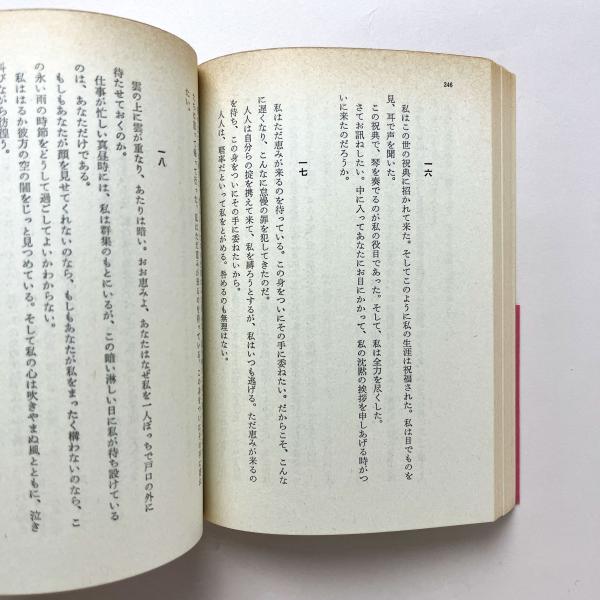 246
一六
私はこの世の祝典に招かれて来た。そしてこのように私の生涯は祝福された。私は目でものを
見、耳で声を聞いた。
この祝典で、琴を奏でるのが私の役目であった。そして、私は全力を尽くした。
さてお訊ねしたい。中に入ってあなたにお目にかかって、私の沈黙の挨拶を申しあげる時がつ
いに来たのだろうか。
一七
私はただ恵みが来るのを待っている。この身をついにその手に委ねたい。だからこそ、こんな
に遅くなり、こんなに怠慢の罪を犯してきたのだ。
人人は自分らの掟を携えて来て、私を縛ろうとするが、私はいつも逃げる。ただ恵みが来るの
を待ち、この身をついにその手に委ねたいから。
人人は、懶惰だといって私をとがめる。咎めるのも無理はない。
たい。
一八
雲の上に雲が重なり、あたりは暗い。おお恵みよ、あなたはなぜ私を一人ぼっちで戸口の外に
待たせておくのか。
仕事が忙しい真昼時には、私は群集のもとにいるが、この暗い淋しい日に私が待ち設けている
のは、あなただけである。
もしもあなたが顔を見せてくれないのなら、もしもあなたが私をまったく構わないのなら、こ
の永い雨の時節をどうして過ごしてよいかわからない。
私ははるか彼方の空の闇をじっと見つめている。そして私の心は吹きやまぬ風とともに、泣き
叫びながら彷徨う。